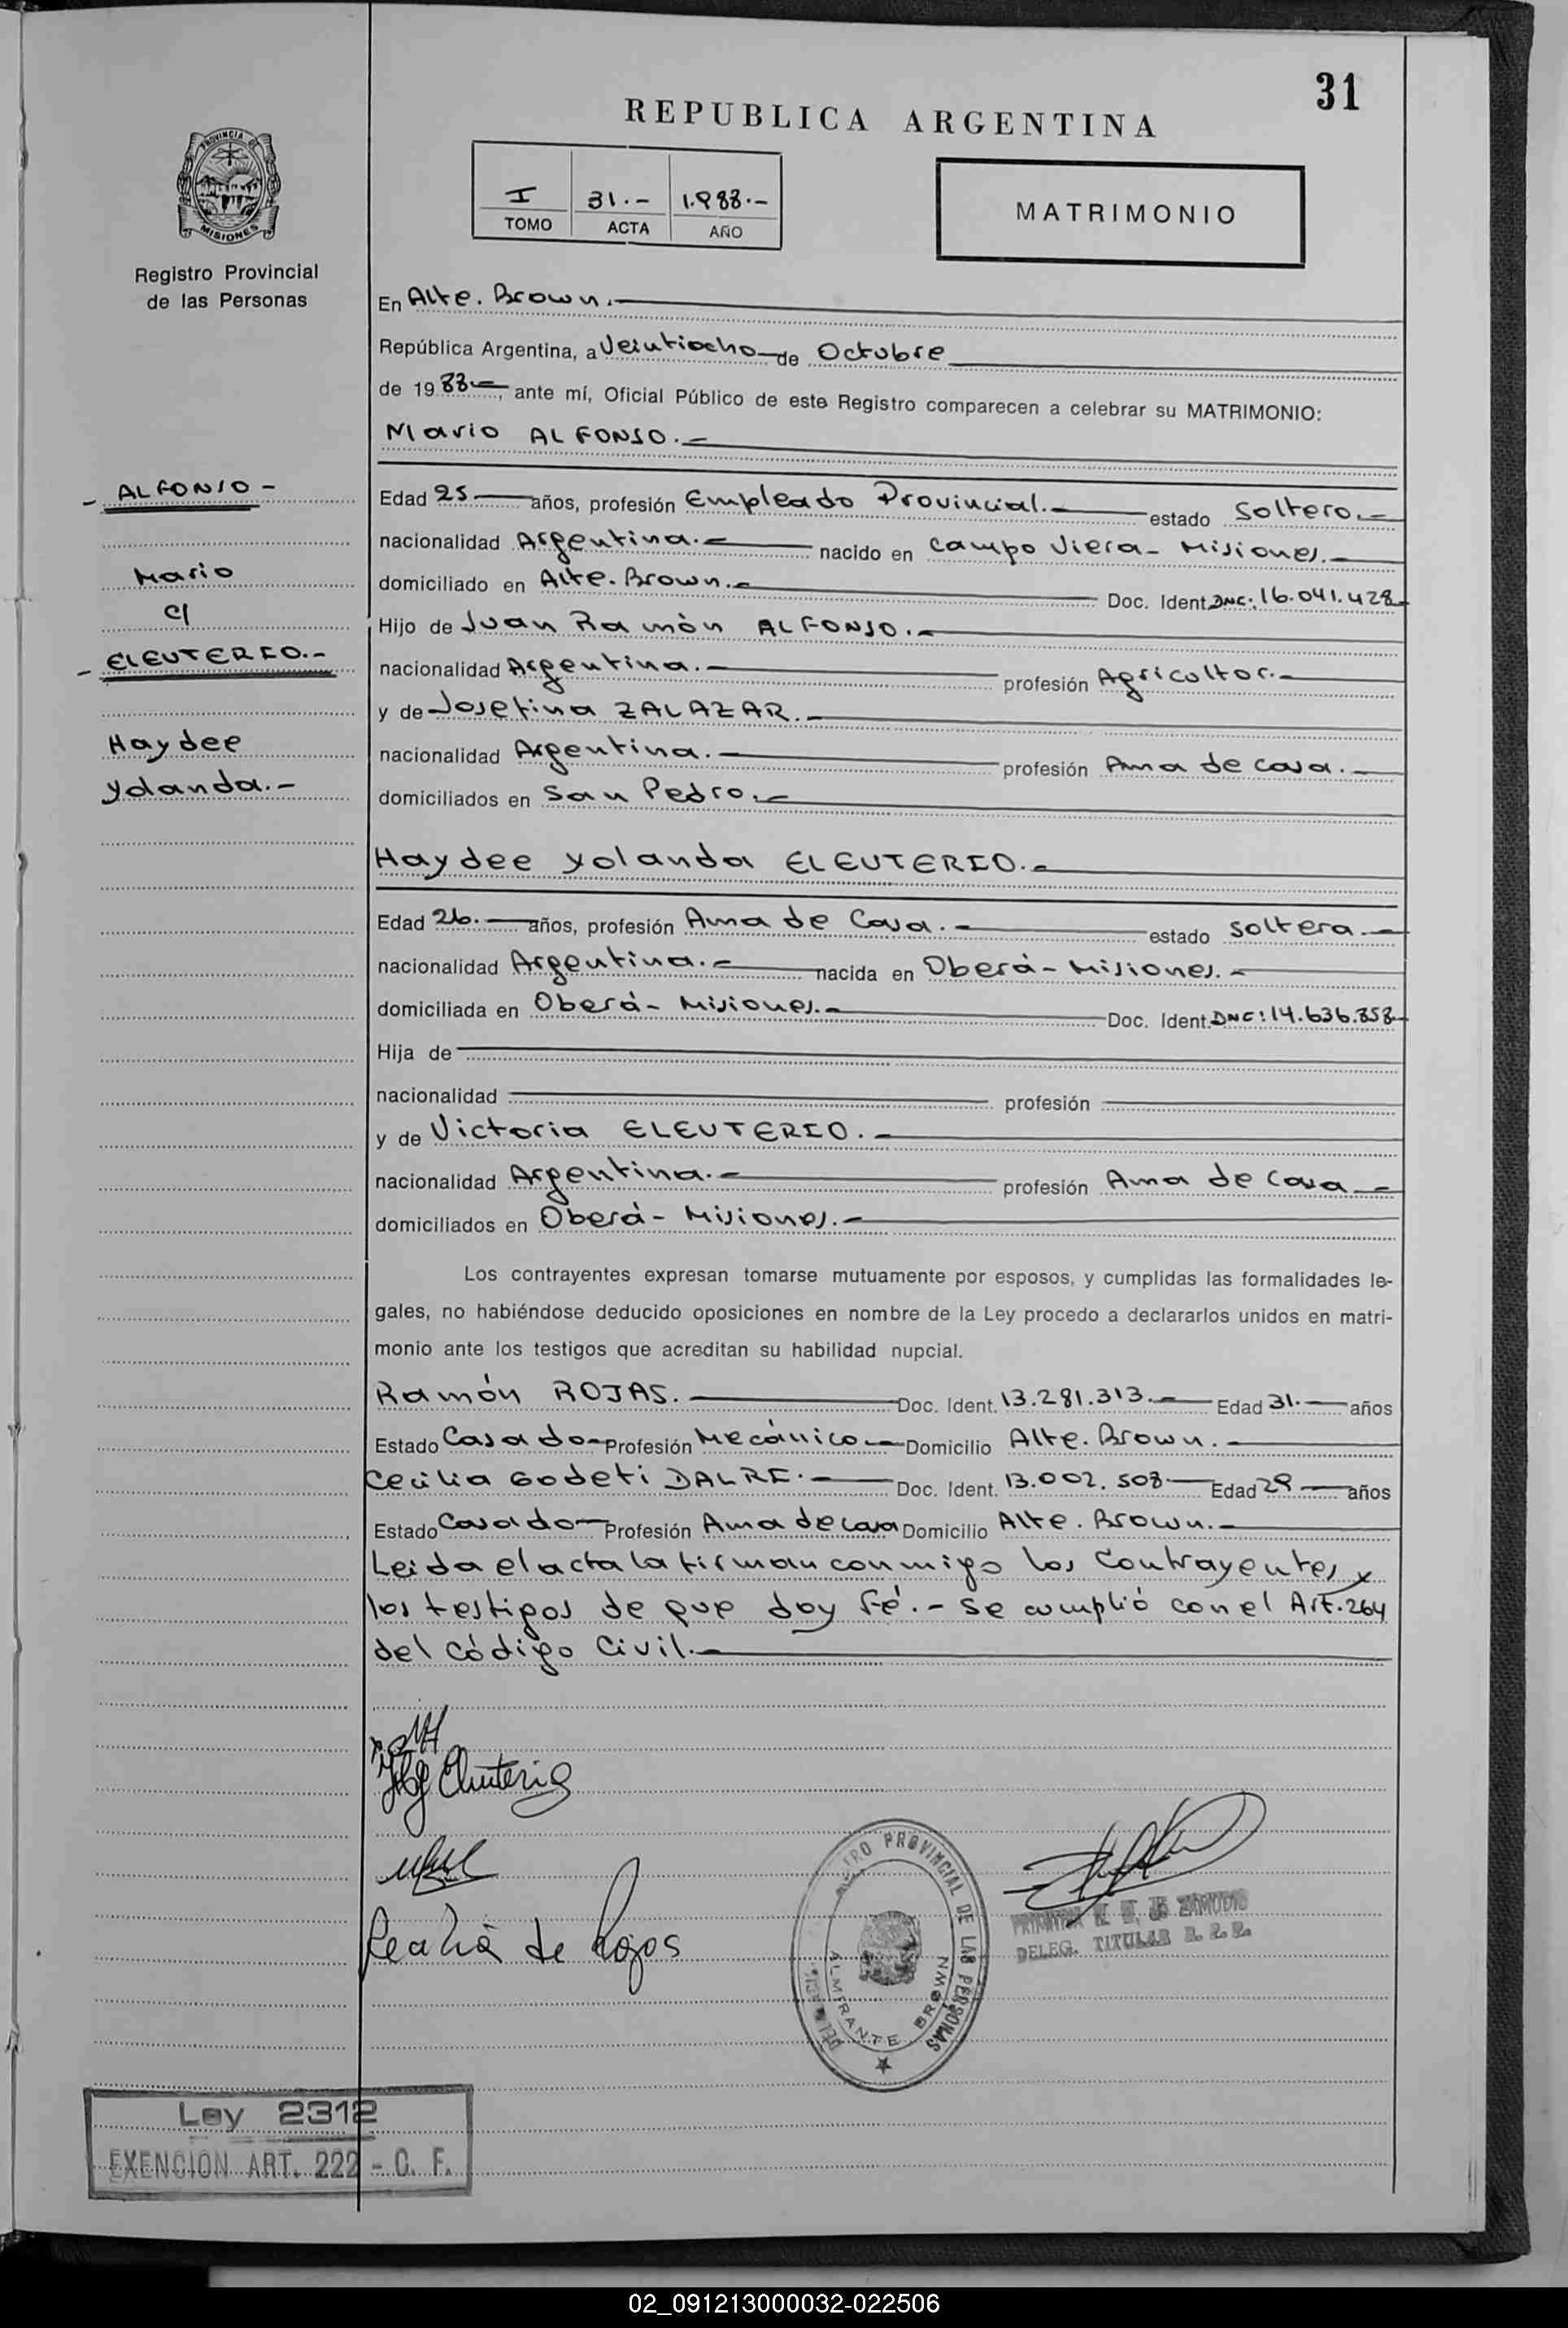 31
REPUBLICA ARGENTINA
PROVINCIA DE
MISIONES
Registro Provincial
de las Personas
I 31.- 1.988.-
TOMO ACTA AÑO
MATRIMONIO
En Alte. Brown.
República Argentina, a Veintiocho de Octubre
de 1988.-, ante mí, Oficial Público de este Registro comparecen a celebrar su MATRIMONIO:
Mario ALFONSO.-
- ALFONSO -
Mario
c/
- ELEUTERIO.-
Haydee
Yolanda.-
Edad 25 años, profesión Empleado Provincial.- estado Soltero.-
nacionalidad Argentina.- nacido en Campo Viera - Misiones.-
domiciliado en Alte. Brown.- Doc. Ident. DNI: 16.041.428
Hijo de Juan Ramón ALFONSO.-
nacionalidad Argentina.- profesión Agricultor.-
y de Josefina ZALAZAR.-
nacionalidad Argentina.- profesión Ama de casa.-
domiciliados en San Pedro.-
Haydee Yolanda ELEUTERIO.-
Edad 26.- años, profesión Ama de Casa.- estado soltera.-
nacionalidad Argentina.- nacida en Oberá - Misiones.-
domiciliada en Oberá - Misiones.- Doc. Ident. DNI: 14.636.858
Hija de
nacionalidad profesión
y de Victoria ELEUTERIO.-
nacionalidad Argentina.- profesión Ama de Casa
domiciliados en Oberá - Misiones.-
Los contrayentes expresan tomarse mutuamente por esposos, y cumplidas las formalidades le-
gales, no habiéndose deducido oposiciones en nombre de la Ley procedo a declararlos unidos en matri-
monio ante los testigos que acreditan su habilidad nupcial.
Ramón ROJAS. Doc. Ident. 13.281.313.- Edad 31.- años
Estado Casado Profesión Mecánico Domicilio Alte. Brown.-
Cecilia Godeti DALRI.- Doc. Ident. 13.002.508 Edad 29 años
Estado Casado Profesión Ama de casa Domicilio Alte. Brown.-
Leida el acta la firman conmigo los Contrayentes y
los testigos de que doy Fé.- Se cumplió con el Art. 264
del Código Civil.-
Eleuterio
de Rojas
PROVINCIAL DE LAS PERSONAS
ALMIRANTE BROWN
ZAMUDIO
DELEG. TITULAR
Ley 2312
EXENCION ART. 222 - C. F.
02_091213000032-022506